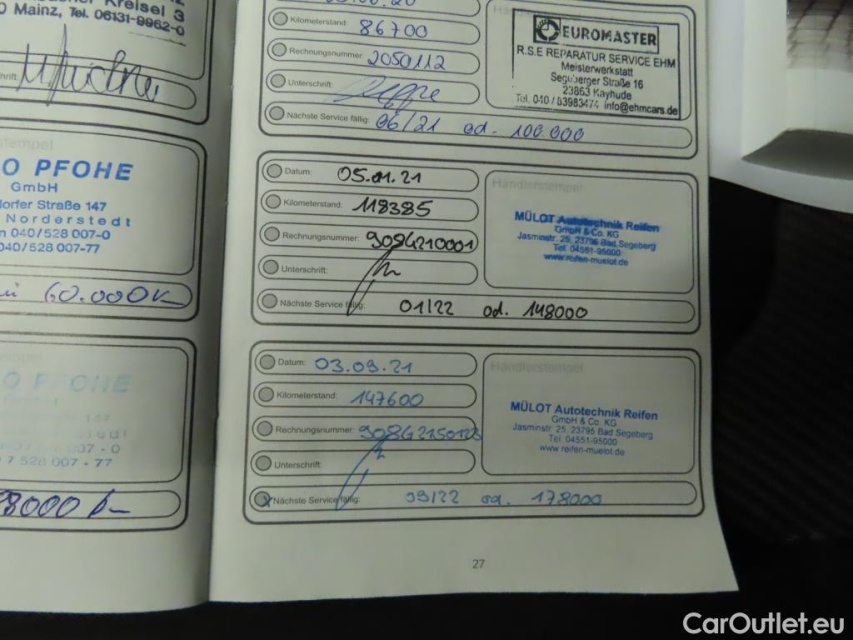 Kreisel 3
0 Mainz, Tel. 06131-9962-0
O PFOHE
GmbH
dorfer Straße 147
Norderstedt
n 040/528 007-0
040/528 007-77
60.000K
O PFOHE
7 528 007 - 77
8000
Kilometerstand: 86700
Rechnungsnummer: 2050112
Unterschrift:
Nächste Service fällig: 06/21 od. 100 000
EUROMASTER
R.S.E REPARATUR SERVICE EHM
Meisterwerkstatt
Segeberger Straße 16
23863 Kayhude
Tel. 040 / 63983474 info@ehmcars.de
Datum: 05.01.21
Kilometerstand: 118385
Rechnungsnummer: 9084210001
Unterschrift:
Nächste Service fällig: 01/22 od. 148000
Händlerstempel
MÜLOT Autotechnik Reifen
GmbH & Co. KG
Jasminstr. 25, 23795 Bad Segeberg
Tel. 04551-95000
www.reifen-muelot.de
Datum: 03.09.21
Kilometerstand: 147600
Rechnungsnummer:
Unterschrift:
Nächste Service fällig: 09/22 od. 178000
Händlerstempel
MÜLOT Autotechnik Reifen
GmbH & Co. KG
Jasminstr. 25, 23795 Bad Segeberg
Tel. 04551-95000
www.reifen-muelot.de
27
CarOutlet.eu